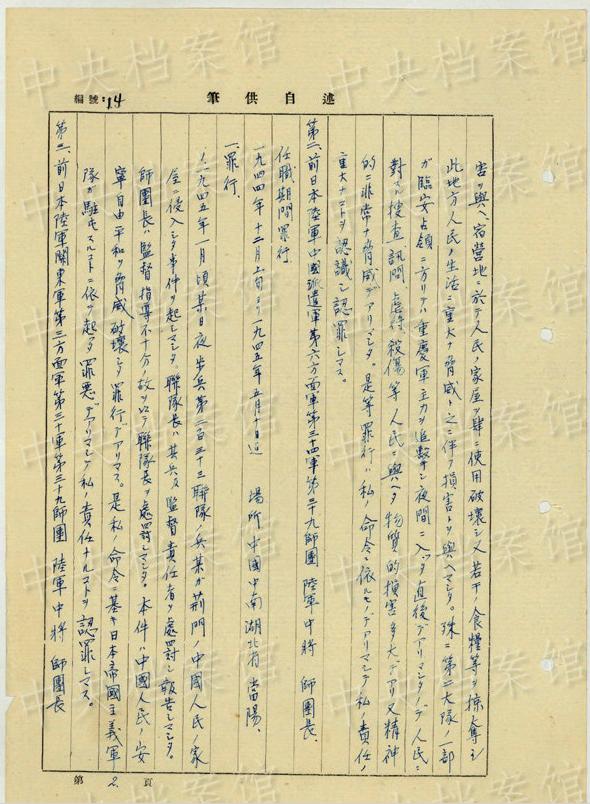 述自供筆
編號:14
害ヲ與ヘ、宿營地ニ於テ人民ノ家屋ヲ肆ニ使用破壞シ又若干ノ食糧等ヲ掠奪シ
此地方人民ノ生活ニ重大ナ脅威ト之ニ伴フ損害トヲ與ヘマシタ。殊ニ第二大隊ノ一部
ガ臨安占領ニ方リテハ重慶軍主力ヲ追擊シ夜間ニ入ッタ直後デアリマシタノデ人民ニ
對スル搜查、訊問、虐待、殺傷等人民ニ與ヘタ物質的損害多大デアリ又精神
的ニ非常ナ脅威デアリマシタ。是等罪行ハ私ノ命令ニ依ルモノデアリマシテ私ノ責任ノ
重大ナコトヲ認識シ認罪シマス。
第二、前日本陸軍中國派遣軍第六方面軍第三十四軍第三十九師團 陸軍中將 師團長、
任職期間罪行
一九四四年十二月上旬ヨリ一九四五年五月十日迄 場所 中國中南湖北省當陽、
一、罪行、
1.一九四五年一月頃某日夜步兵第二百三十三聯隊ノ兵某ガ荊門ノ中國人民ノ家
屋ヘ侵入シタ事件ヲ起シマシタ。聯隊長ハ其兵及監督責任者ヲ處罰シ報告シマシタ。
師團長ハ監督指導不十分ノ故ヲ以テ聯隊長ヲ處罰シマシタ。本件ハ中國人民ノ安
寧自由平和ヲ脅威破壞シタ罪行デアリマス。是私ノ命令ニ基キ日本帝國主義軍
隊ガ駐屯スルコトニ依ッテ起ッタ罪惡デアリマシテ私ノ責任ナルコトヲ認罪シマス。
第三、前日本陸軍關東軍第三方面軍第三十軍第三十九師團 陸軍中將 師團長
第2頁
中央档案馆